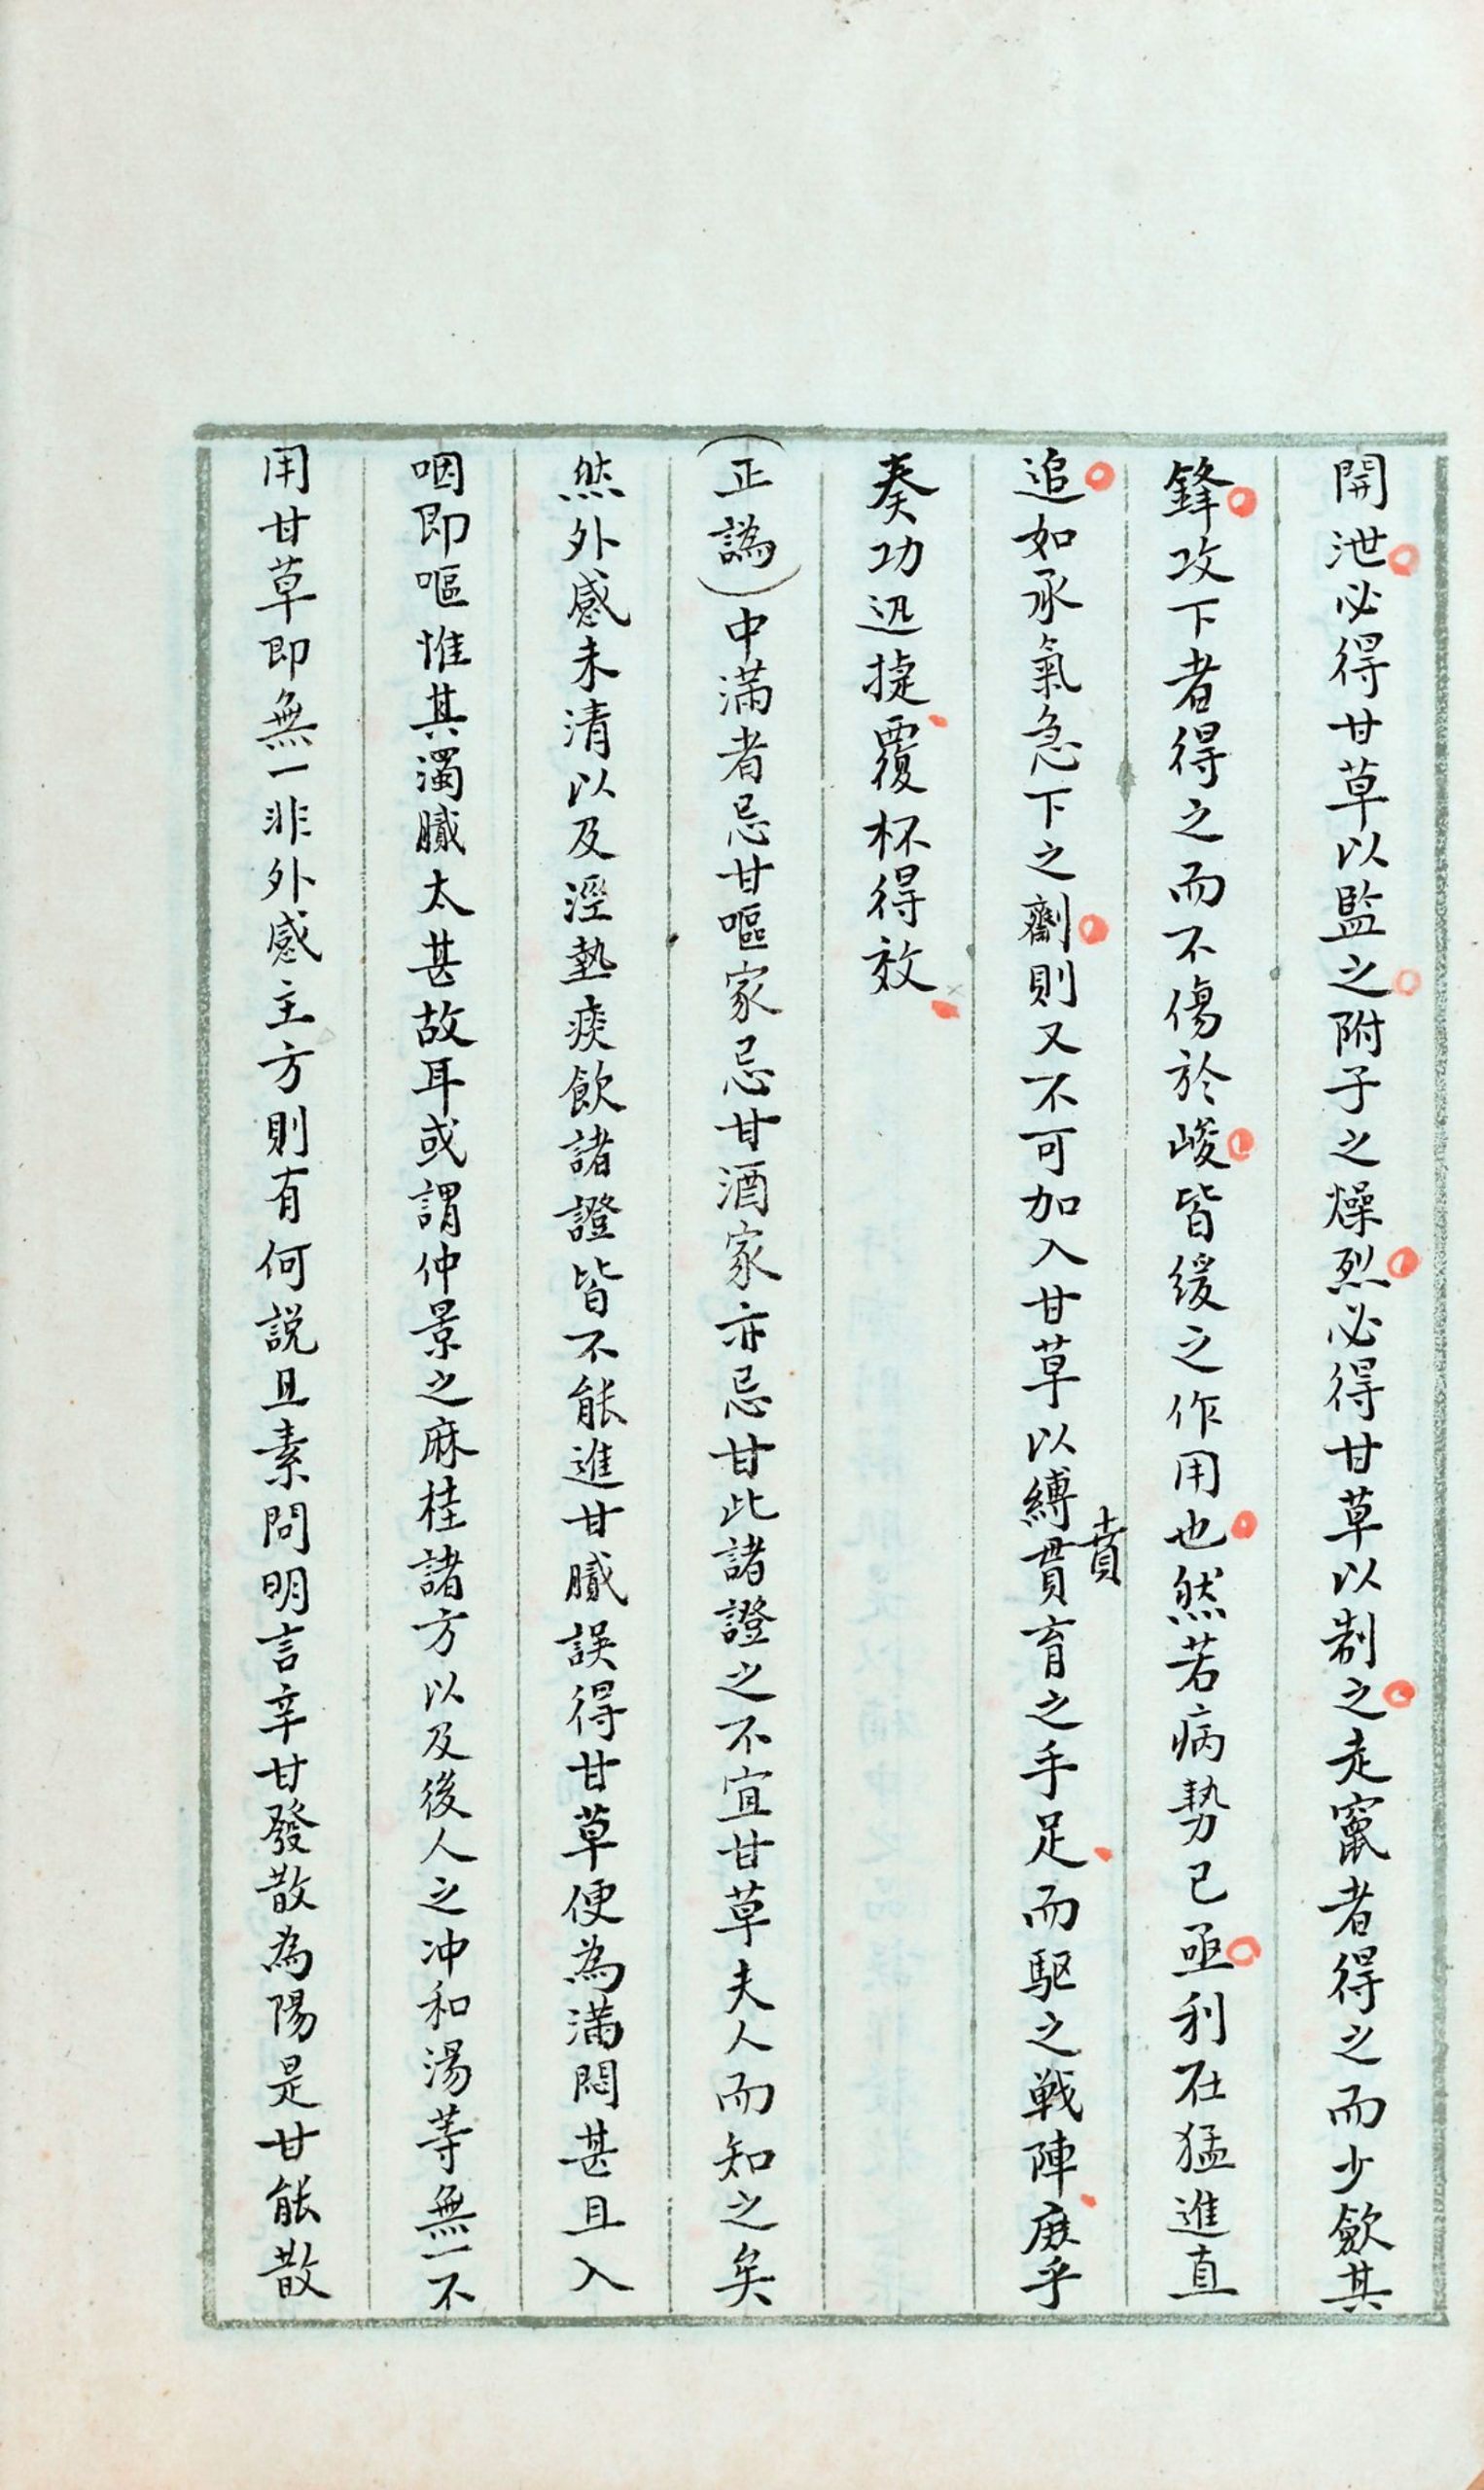 開泄必得甘草以監之附子之燥烈必得甘草以制之走竄者得之而少歛其
鋒攻下者得之而不傷於峻皆緩之作用也然若病勢已亟利在猛進直
追如承氣急下之劑則又不可加入甘草以縛賁育之手足而駆之戦陣庶乎
賁
奏功迅捷覆杯得效
(正譌)中滿者忌甘嘔家忌甘酒家亦忌甘此諸證之不宜甘草夫人而知之矣
然外感未清以及溼熱痰飲諸證皆不能進甘膩誤得甘草便為滿悶甚且入
咽即嘔惟其濁膩太甚故耳或謂仲景之麻桂諸方以及後人之冲和湯等無一不
用甘草即無一非外感主方則有何説且素問明言辛甘發散為陽是甘能散